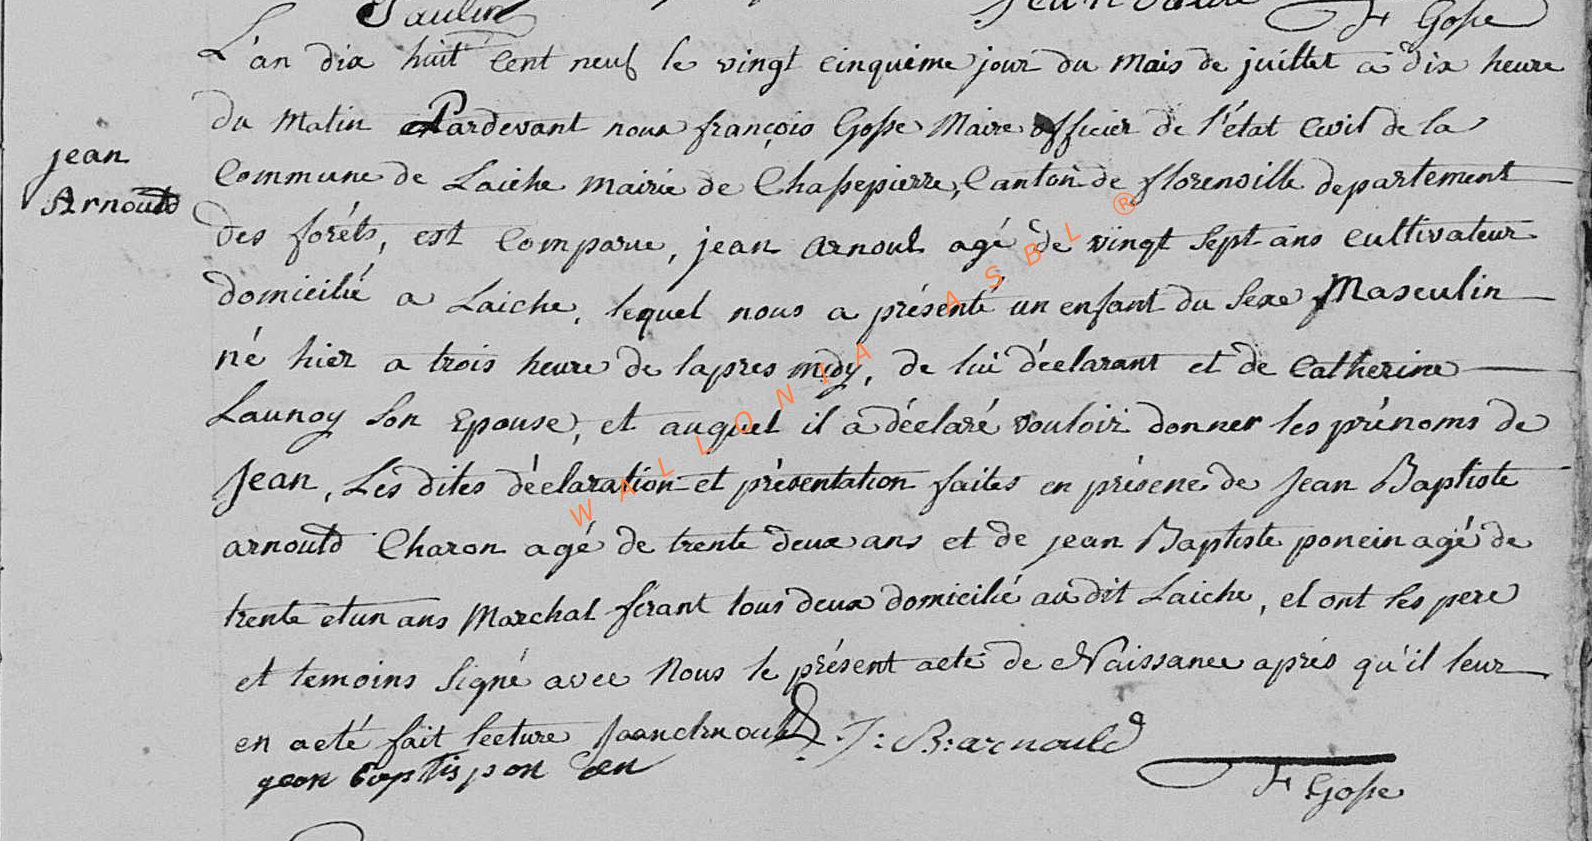 Paulin
F Gosse
L'an dix huit Cent neuf le vingt cinquième jour du mais de juillet a dix heure
du matin Pardevant nous françois Gosse Maire officier de l'état Civil de la
jean
Arnould
Commune de Laiche mairie de Chassepierre, Canton de florenville departement
des foréts, est Comparue, jean arnoul agé de vingt sept ans cultivateur
domicilié a Laiche, lequel nous a présenté un enfant du sexe Masculin
né hier a trois heure de lapres mdy, de lui déclarant et de Catherine
Launoy son Epouse, et auquel il a déclaré vouloir donner les prénoms de
Jean, Les dites déclaration et présentation faites en présence de Jean Baptiste
arnould Charon agé de trente deux ans et de jean Baptiste poncin agé de
trente et un ans Marchal ferant tous deux domicilié au dit Laiche, et ont les pere
et temoins signé avec Nous le présent acte de Naissance aprés qu'il leur
en aeté fait lecture Jean Arnould J: B: arnould
gean baptis pon
F Gosse
WALLONIA ASBL ®